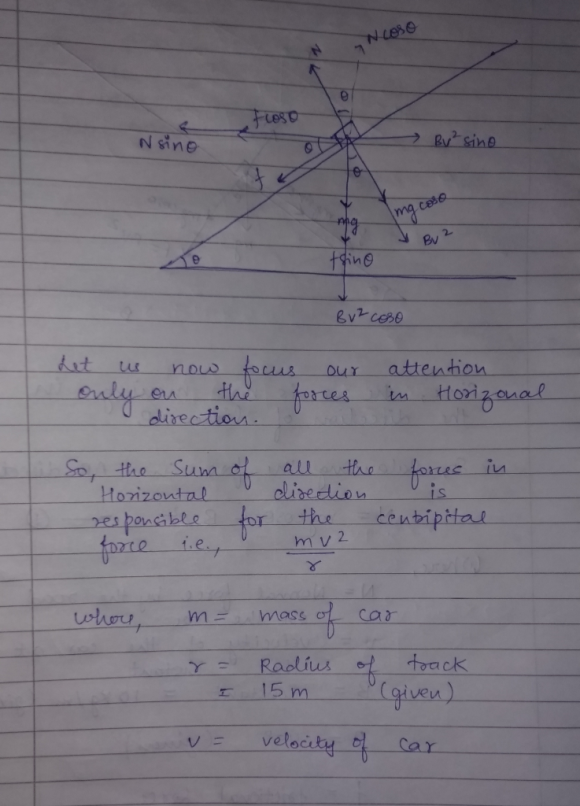 N
N cosθ
θ
f cosθ
N sinθ
θ
Bv² sinθ
θ
f
mg cosθ
mg
Bv²
θ
f sinθ
Bv² cosθ
Let us now focus our attention
only on the forces in Horizonal
direction.
So, the Sum of all the forces in
Horizontal direction is
responsible for the centripital
force i.e., mv²/r
where, m = mass of car
r = Radius of track
= 15 m (given)
v = velocity of car